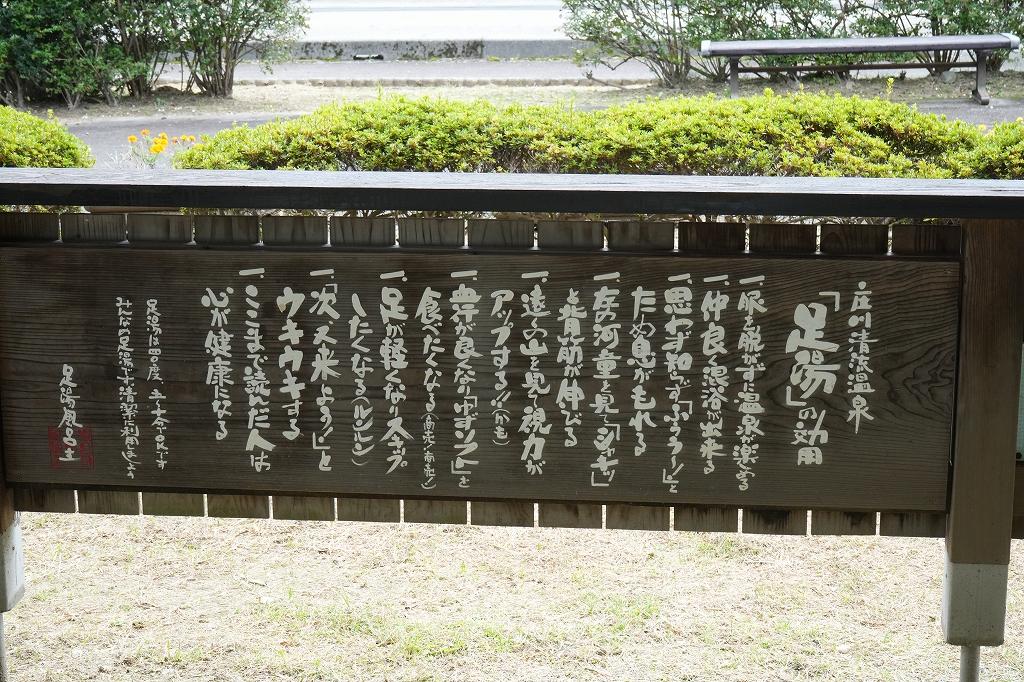 庄川清流温泉
「足湯」の効用
一、服を脱がずに温泉が楽しめる
一、仲良く混浴が出来る
一、思わず知らず「ふぅうー」と
ため息がもれる
一、河童を見て「シャキッ」
と背筋が伸びる
一、遠くの山を見て視力が
アップする!!(かも)
一、血行が良くなり「ゆずソフト」を
食べたくなる
一、足が軽くなりスキップ
したくなる(ルンルン)
一、「次又来よう!」と
ウキウキする
一、ここまで読んだ人は
心が健康になる
足湯は四〇度
みんなの足湯です清潔に利用しましょう
足湯風呂士